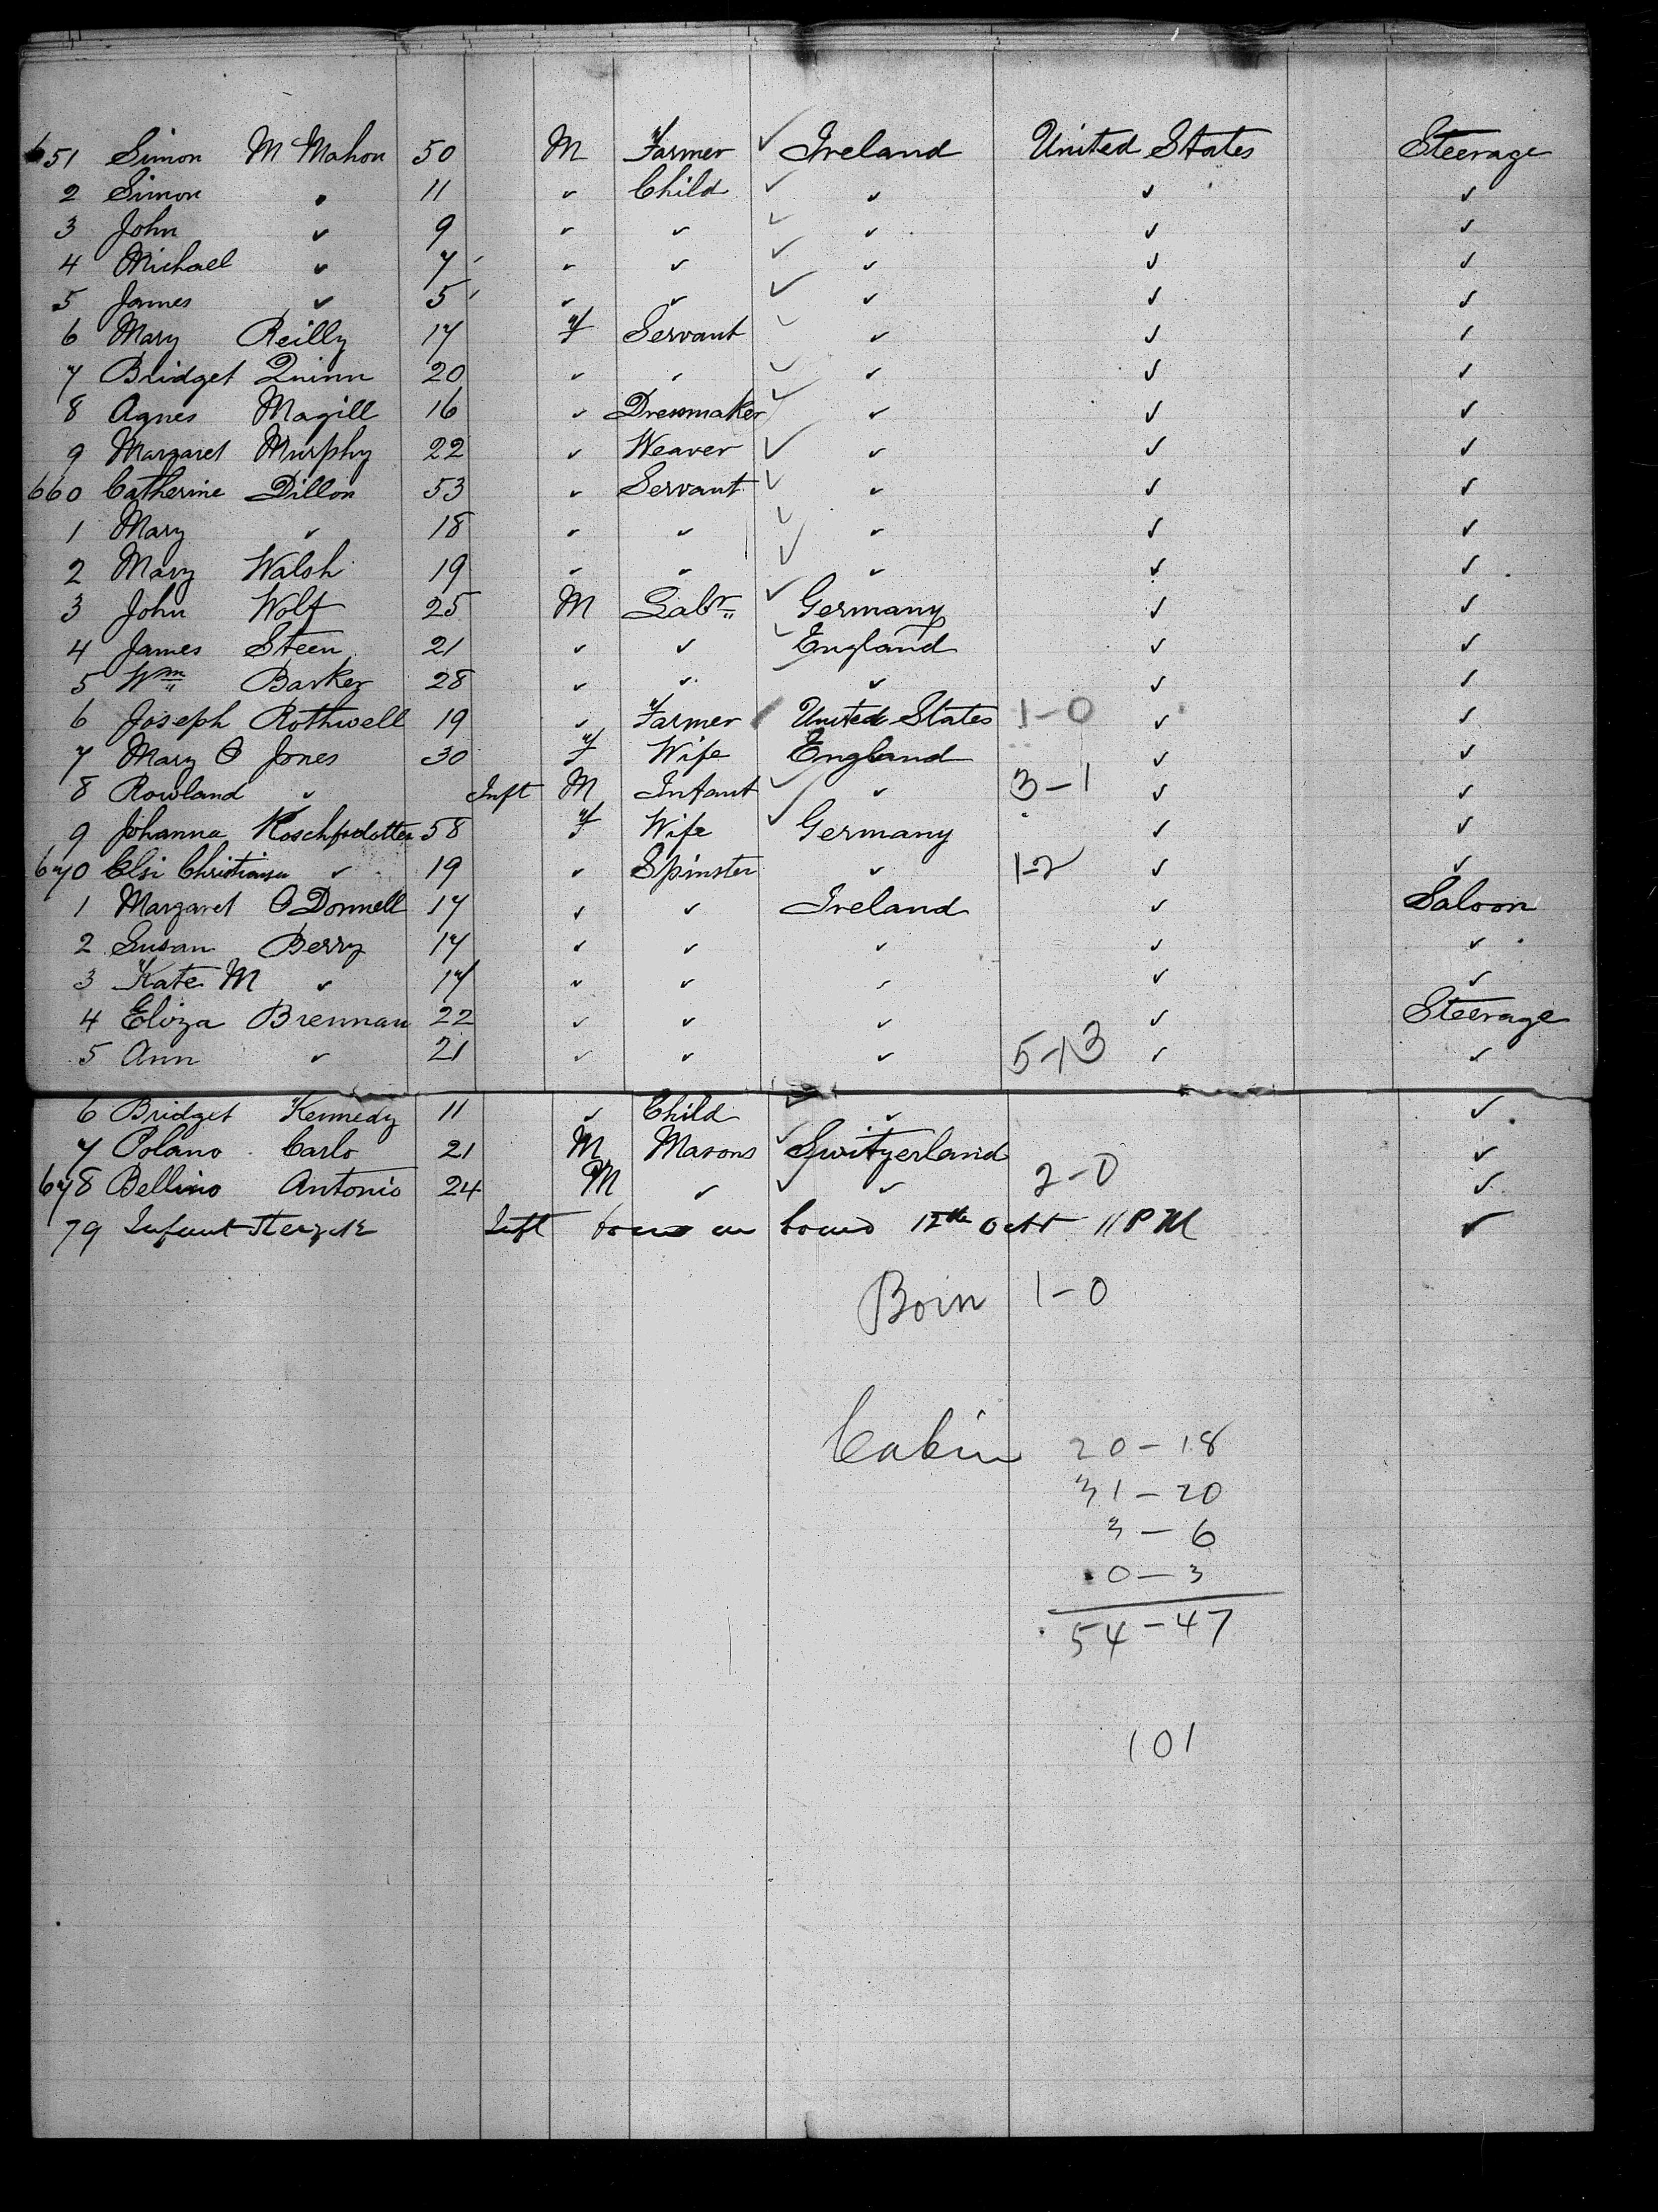 651 Simon M Mahon 50 M Farmer ✓ Ireland United States Steerage
2 Simon " 11 ✓ Child ✓ ✓ ✓ ✓
3 John ✓ 9 ✓ ✓ ✓ ✓ ✓ ✓
4 Michael ✓ 7 ✓ ✓ ✓ ✓ ✓ ✓
5 James ✓ 5 ✓ ✓ ✓ ✓ ✓ ✓
6 Mary Reilly 17 f Servant ✓ ✓ ✓ ✓
7 Bridget Quinn 20 ✓ ✓ ✓ ✓ ✓ ✓
8 Agnes Magill 16 ✓ Dressmaker ✓ ✓ ✓ ✓
9 Margaret Murphy 22 ✓ Weaver ✓ ✓ ✓ ✓
660 Catherine Dillon 53 ✓ Servant ✓ ✓ ✓ ✓
1 Mary ✓ 18 ✓ ✓ ✓ ✓ ✓ ✓
2 Mary Walsh 19 ✓ ✓ ✓ ✓ ✓ ✓
3 John Wolf 25 M Labr ✓ Germany ✓ ✓
4 James Steen 21 ✓ ✓ ✓ England ✓ ✓
5 Wm Barker 28 ✓ ✓ ✓ ✓ ✓ ✓
6 Joseph Rothwell 19 ✓ Farmer ✓ United States 1-0 ✓ ✓
7 Mary O Jones 30 f Wife England ✓ ✓
8 Rowland ✓ Inft M Infant ✓ ✓ 3-1 ✓ ✓
9 Johanna 58 f Wife ✓ Germany ✓ ✓
670 Elsi ✓ 19 ✓ Spinster ✓ 1-2 ✓ ✓
1 Margaret O Donnell 17 ✓ ✓ Ireland ✓ Saloon
2 Susan Berry 17 ✓ ✓ ✓ ✓ ✓
3 Kate M ✓ 17 ✓ ✓ ✓ ✓ ✓
4 Eliza Brennan 22 ✓ ✓ ✓ ✓ Steerage
5 Ann ✓ 21 ✓ ✓ ✓ 5-13 ✓ ✓
6 Bridget Kennedy 11 ✓ Child ✓ ✓ ✓
7 Polano Carlo 21 M Masons ✓ Switzerland ✓
678 Bellino Antonio 24 M ✓ ✓ ✓ 2-0 ✓
79 Infant Inft born on board 12th Octr 11 PM ✓
Born 1-0
Cabin 20-18
31-20
3-6
0-3
54-47
101